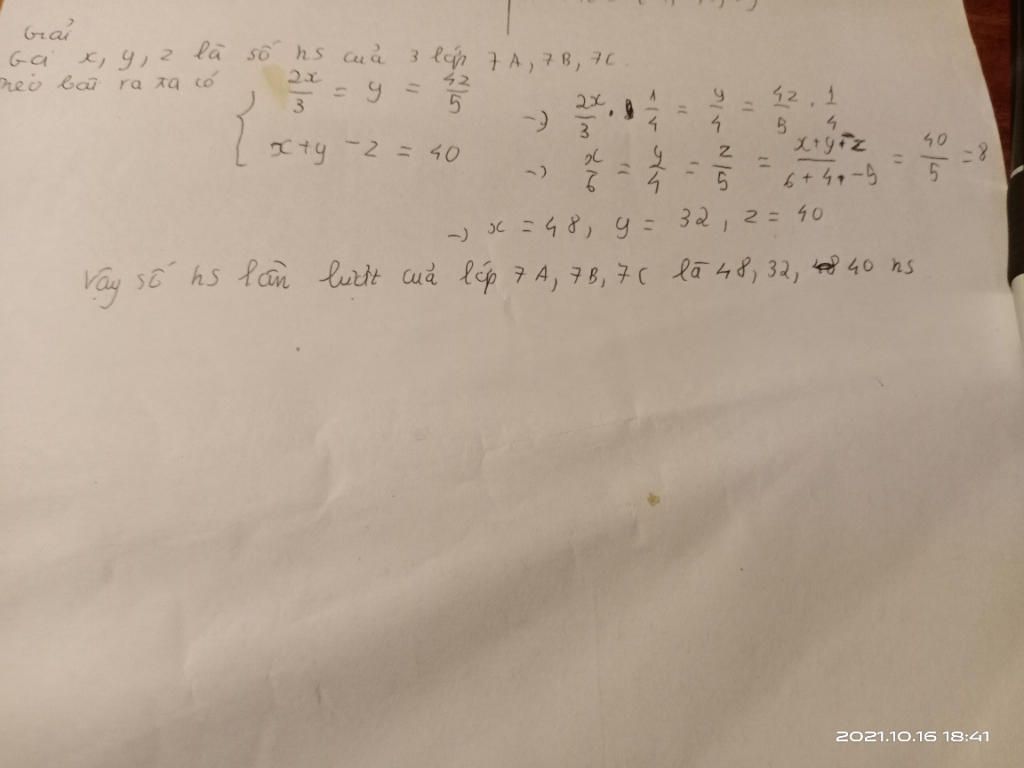 Giải
Gọi x, y, z là số hs của 3 lớp 7A, 7B, 7C.
Theo bài ra ta có { 2x/3 = y = 4z/5
x + y - z = 40
→ 2x/3 . 1/4 = y/4 = 4z/5 . 1/4
→ x/6 = y/4 = z/5 = x+y-z/6+4-5 = 40/5 = 8
→ x = 48, y = 32, z = 40
Vậy số hs lần lượt của lớp 7A, 7B, 7C là 48, 32, 40 hs
2021.10.16 18:41